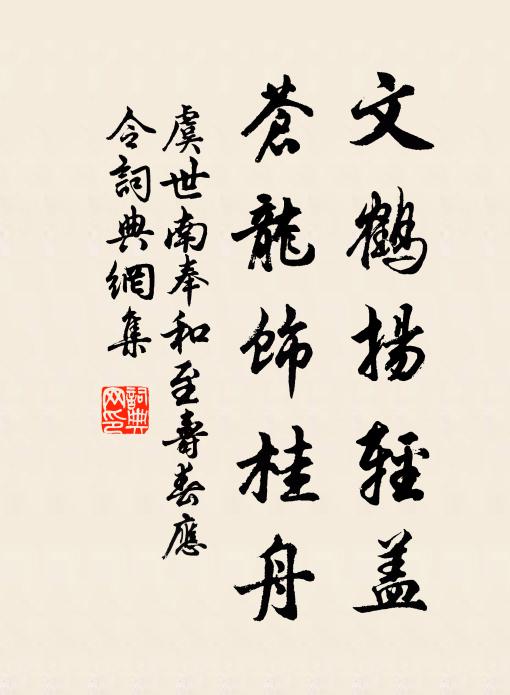 文鶴揚輕蓋
蒼龍飾桂舟
虞世南奉和至壽春應
令詞典網集
詞典网印